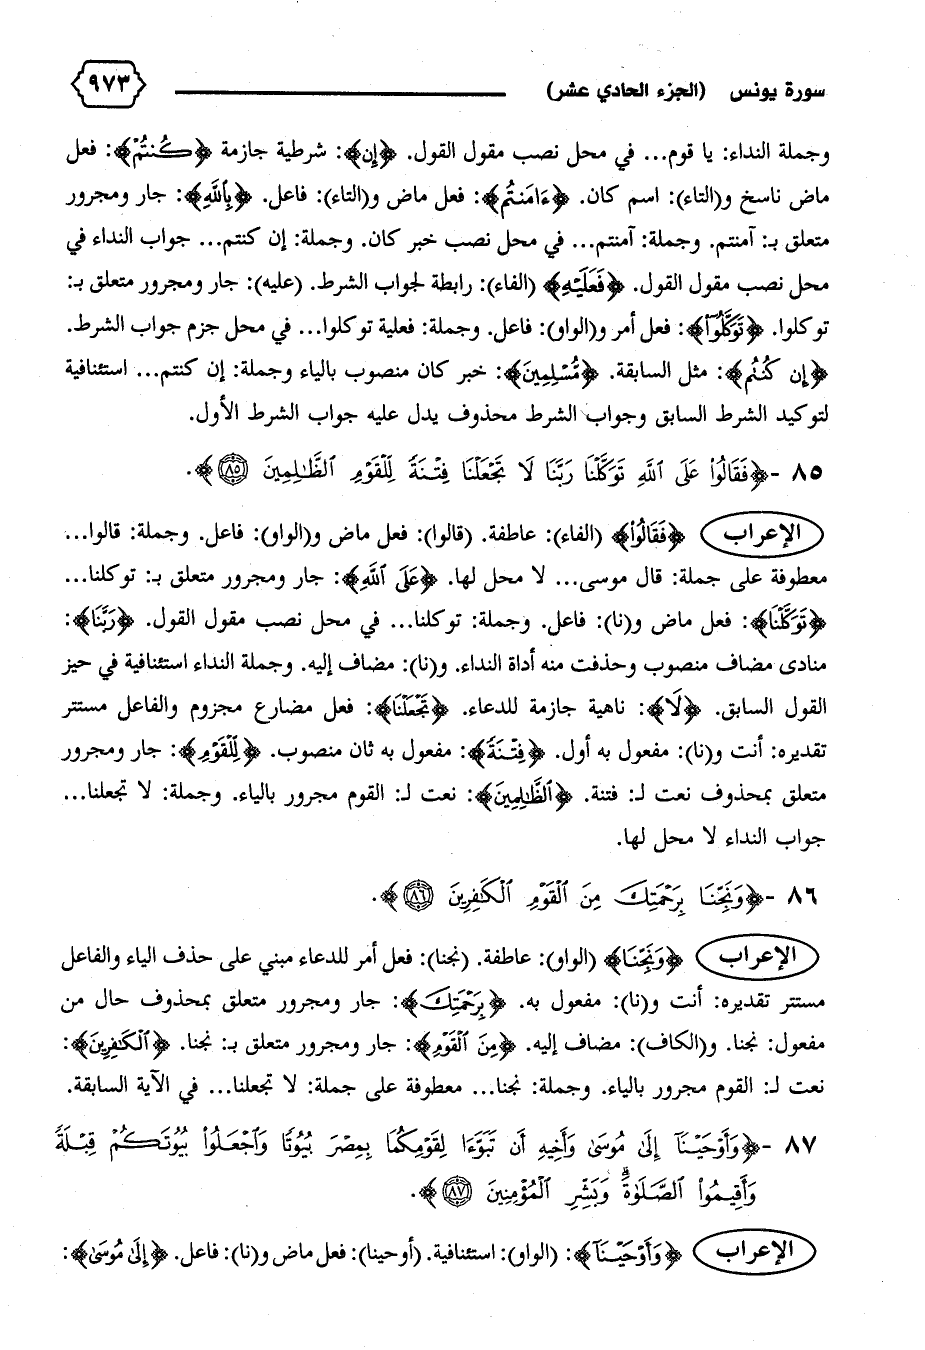 سورة يونس (الجزء الحادي عشر) ٩٧٣
وجملة النداء: يا قوم... في محل نصب مقول القول. ﴿إِن﴾: شرطية جازمة ﴿كُنتُمْ﴾: فعل
ماض ناسخ و(التاء): اسم كان. ﴿ءَامَنتُم﴾: فعل ماض و(التاء): فاعل. ﴿بِٱللَّهِ﴾: جار ومجرور
متعلق بـ: آمنتم. وجملة: آمنتم... في محل نصب خبر كان. وجملة: إن كنتم... جواب النداء في
محل نصب مقول القول. ﴿فَعَلَيْهِ﴾ (الفاء): رابطة لجواب الشرط. (عليه): جار ومجرور متعلق بـ:
توكلوا. ﴿تَوَكَّلُوٓا۟﴾: فعل أمر و(الواو): فاعل. وجملة: فعلية توكلوا... في محل جزم جواب الشرط.
﴿إِن كُنتُم﴾: مثل السابقة. ﴿مُّسْلِمِينَ﴾: خبر كان منصوب بالياء وجملة: إن كنتم... استئنافية
لتوكيد الشرط السابق وجواب الشرط محذوف يدل عليه جواب الشرط الأول.
٨٥ -﴿فَقَالُوا۟ عَلَى ٱللَّهِ تَوَكَّلْنَا رَبَّنَا لَا تَجْعَلْنَا فِتْنَةً لِّلْقَوْمِ ٱلظَّٰلِمِينَ ٨٥﴾.
الإعراب ﴿فَقَالُوا۟﴾ (الفاء): عاطفة. (قالوا): فعل ماض و(الواو): فاعل. وجملة: قالوا...
معطوفة على جملة: قال موسى... لا محل لها. ﴿عَلَى ٱللَّهِ﴾: جار ومجرور متعلق بـ: توكلنا...
﴿تَوَكَّلْنَا﴾: فعل ماض و(نا): فاعل. وجملة: توكلنا... في محل نصب مقول القول. ﴿رَبَّنَا﴾:
منادى مضاف منصوب وحذفت منه أداة النداء. و(نا): مضاف إليه. وجملة النداء استئنافية في حيز
القول السابق. ﴿لَا﴾: ناهية جازمة للدعاء. ﴿تَجْعَلْنَا﴾: فعل مضارع مجزوم والفاعل مستتر
تقديره: أنت و(نا): مفعول به أول. ﴿فِتْنَةً﴾: مفعول به ثان منصوب. ﴿لِّلْقَوْمِ﴾: جار ومجرور
متعلق بمحذوف نعت لـ: فتنة. ﴿ٱلظَّٰلِمِينَ﴾: نعت لـ: القوم مجرور بالياء. وجملة: لا تجعلنا...
جواب النداء لا محل لها.
٨٦ -﴿وَنَجِّنَا بِرَحْمَتِكَ مِنَ ٱلْقَوْمِ ٱلْكَٰفِرِينَ ٨٦﴾.
الإعراب ﴿وَنَجِّنَا﴾ (الواو): عاطفة. (نجنا): فعل أمر للدعاء مبني على حذف الياء والفاعل
مستتر تقديره: أنت و(نا): مفعول به. ﴿بِرَحْمَتِكَ﴾: جار ومجرور متعلق بمحذوف حال من
مفعول: نجنا. و(الكاف): مضاف إليه. ﴿مِنَ ٱلْقَوْمِ﴾: جار ومجرور متعلق بـ: نجنا. ﴿ٱلْكَٰفِرِينَ﴾:
نعت لـ: القوم مجرور بالياء. وجملة: نجنا... معطوفة على جملة: لا تجعلنا... في الآية السابقة.
٨٧ -﴿وَأَوْحَيْنَآ إِلَىٰ مُوسَىٰ وَأَخِيهِ أَن تَبَوَّءَا لِقَوْمِكُمَا بِمِصْرَ بُيُوتًا وَٱجْعَلُوا۟ بُيُوتَكُمْ قِبْلَةً
وَأَقِيمُوا۟ ٱلصَّلَوٰةَ ۗ وَبَشِّرِ ٱلْمُؤْمِنِينَ ٨٧﴾.
الإعراب ﴿وَأَوْحَيْنَآ﴾: (الواو): استئنافية. (أوحينا): فعل ماض و(نا): فاعل. ﴿إِلَىٰ مُوسَىٰ﴾: